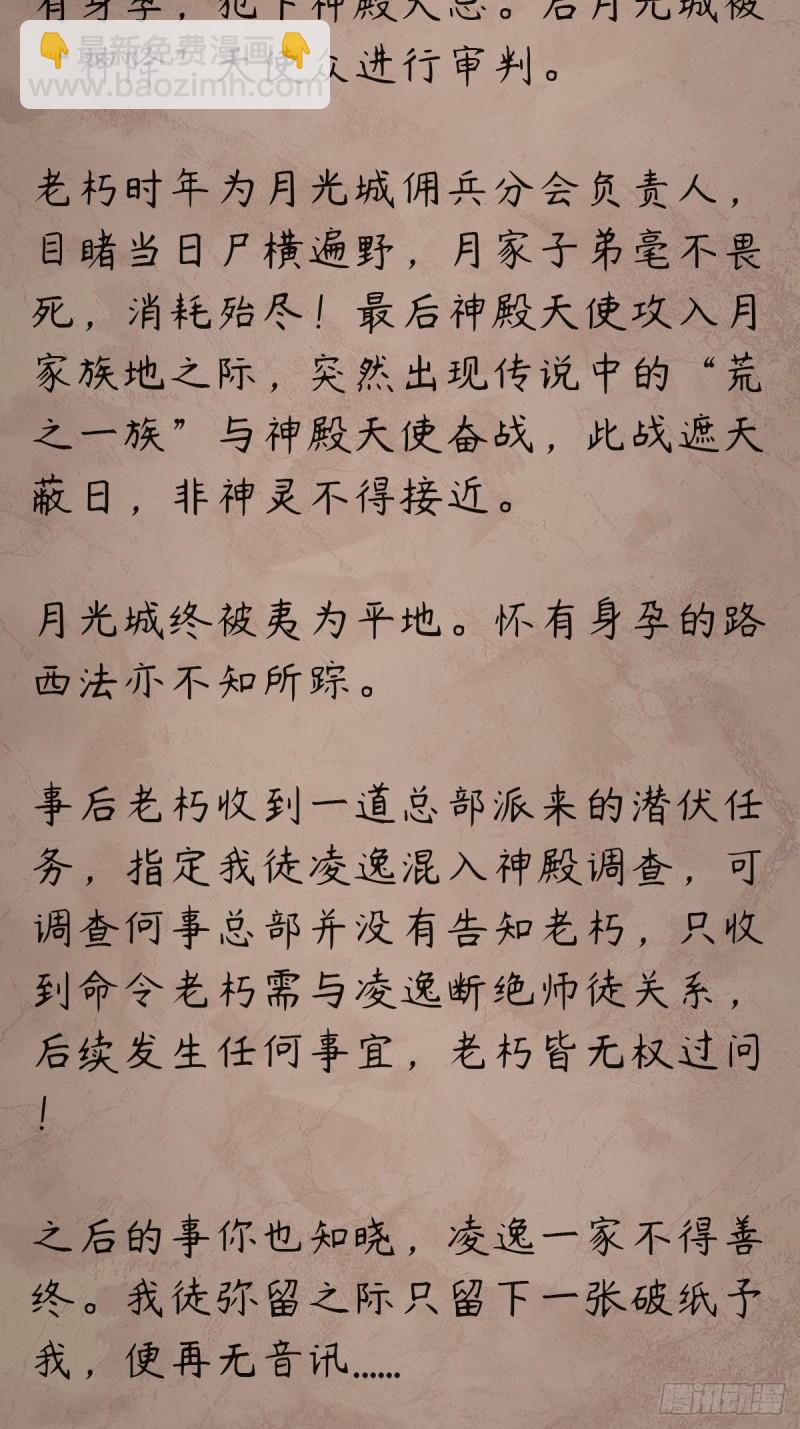 有身孕，犯下神殿大忌。后月光城被
👇最新免费漫画👇
www.baozimh.com
“神降”天使众进行审判。
老朽时年为月光城佣兵分会负责人，
目睹当日尸横遍野，月家子弟毫不畏
死，消耗殆尽！最后神殿天使攻入月
家族地之际，突然出现传说中的“荒
之一族”与神殿天使奋战，此战遮天
蔽日，非神灵不得接近。
月光城终被夷为平地。怀有身孕的路
西法亦不知所踪。
事后老朽收到一道总部派来的潜伏任
务，指定我徒凌逸混入神殿调查，可
调查何事总部并没有告知老朽，只收
到命令老朽需与凌逸断绝师徒关系，
后续发生任何事宜，老朽皆无权过问
！
之后的事你也知晓，凌逸一家不得善
终。我徒弥留之际只留下一张破纸予
我，便再无音讯……
腾讯动漫